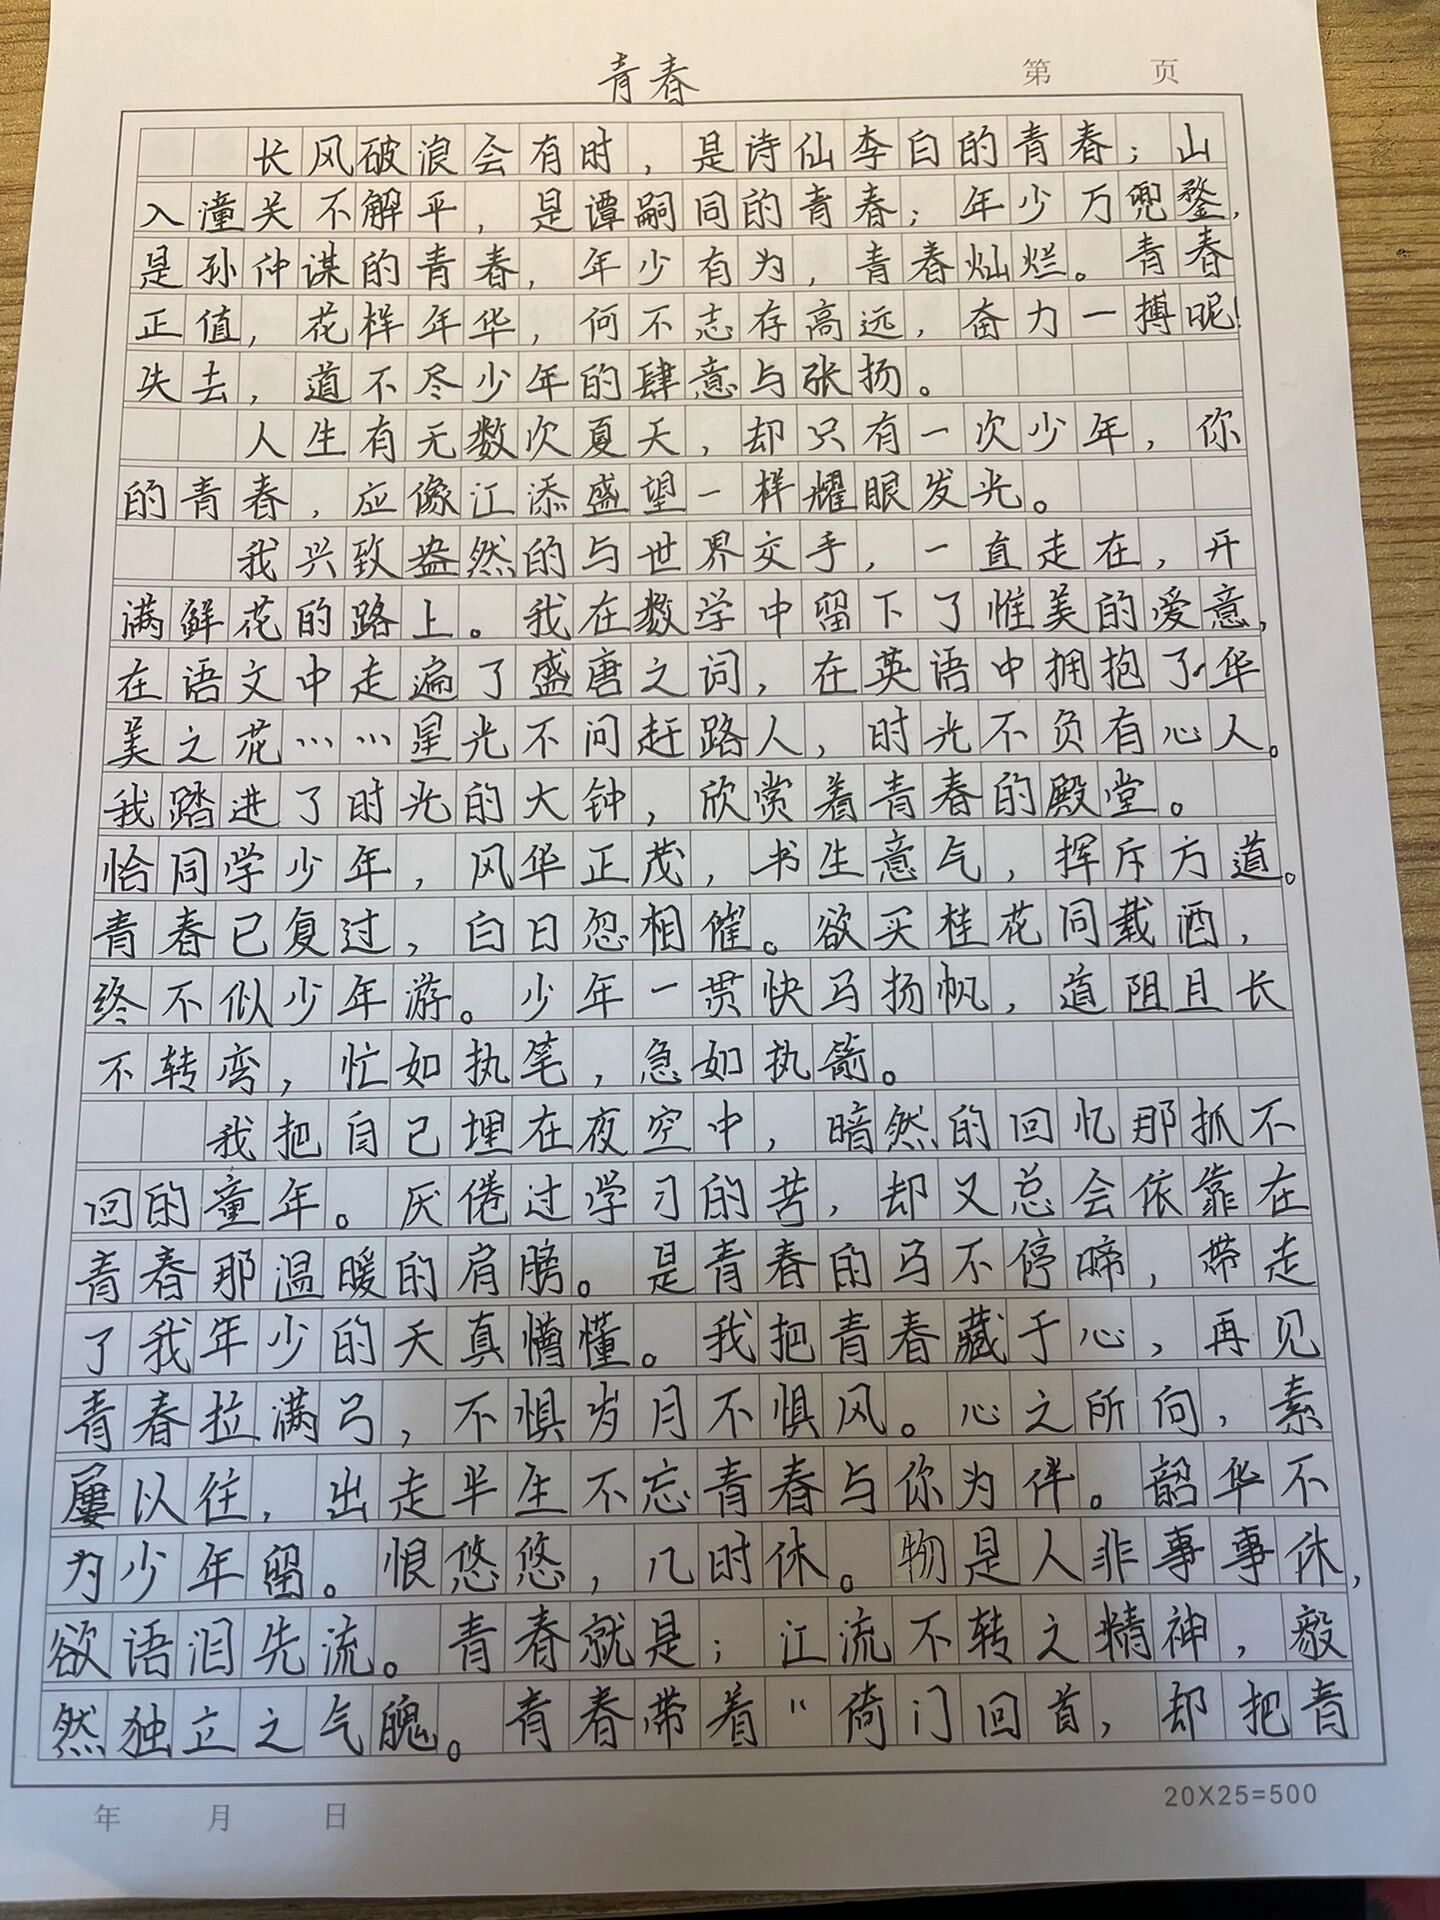 青春
第 页
长风破浪会有时，是诗仙李白的青春；山
入潼关不解平，是谭嗣同的青春；年少万兜鍪，
是孙仲谋的青春，年少有为，青春灿烂。青春
正值，花样年华，何不志存高远，奋力一搏呢！
失去，道不尽少年的肆意与张扬。
人生有无数次夏天，却只有一次少年，你
的青春，应像江添盛望一样耀眼发光。
我兴致盎然的与世界交手，一直走在，开
满鲜花的路上。我在数学中留下了惟美的爱意，
在语文中走遍了盛唐之词，在英语中拥抱了华
美之花……星光不问赶路人，时光不负有心人。
我踏进了时光的大钟，欣赏着青春的殿堂。
恰同学少年，风华正茂，书生意气，挥斥方道。
青春已复过，白日忽相催。欲买桂花同载酒，
终不似少年游。少年一贯快马扬帆，道阻且长
不转弯，忙如执笔，急如执箭。
我把自己埋在夜空中，暗然的回忆那抓不
回的童年。厌倦过学习的苦，却又总会依靠在
青春那温暖的肩膀。是青春的马不停啼，带走
了我年少的天真懵懂。我把青春藏于心，再见
青春拉满弓，不惧岁月不惧风。心之所向，素
屦以往，出走半生不忘青春与你为伴。韶华不
为少年留。恨悠悠，几时休。物是人非事事休，
欲语泪先流。青春就是；江流不转之精神，毅
然独立之气魄。青春带着“倚门回首，却把青
年 月 日
20X25=500